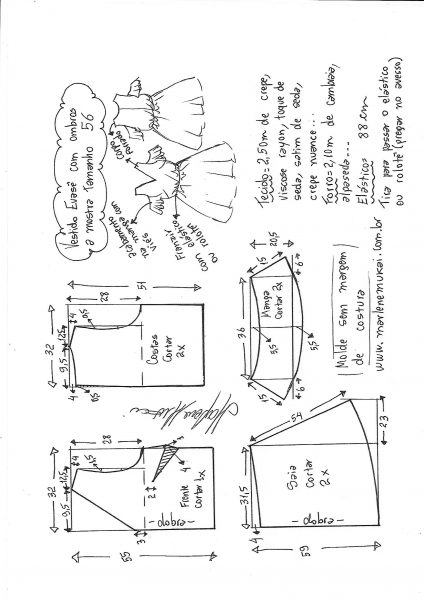 Vestido Evasê com ombros
a mostra Tamanho 56
Corpo
forrado
acabamento
viés
na manga com
Franzir
elástico
com
ou rolotê
Tecido = 2,50m de crepe,
viscose rayon, toque de
seda, satim de seda,
crepe nuance...
Forro = 2,10m de cambraia,
alpaseda...
Elástico = 88 cm
Tira para passar o elástico
ou rolotê (pregar no avesso)
51
28
32
9,5
12,5
4
4
0,5
0,5
Costas
Cortar
2x
20,5
15
6
36
Manga
Cortar 2x
5,5
5,5
15
6
Molde sem margem
de costura
www.marlenemukai.com.br
55
28
32
9,5
12,5
4
0,5
3
2
4
3
Frente
cortar 1x
-dobra-
54
31,5
4
59
23
Saia
Cortar
2x
-dobra-